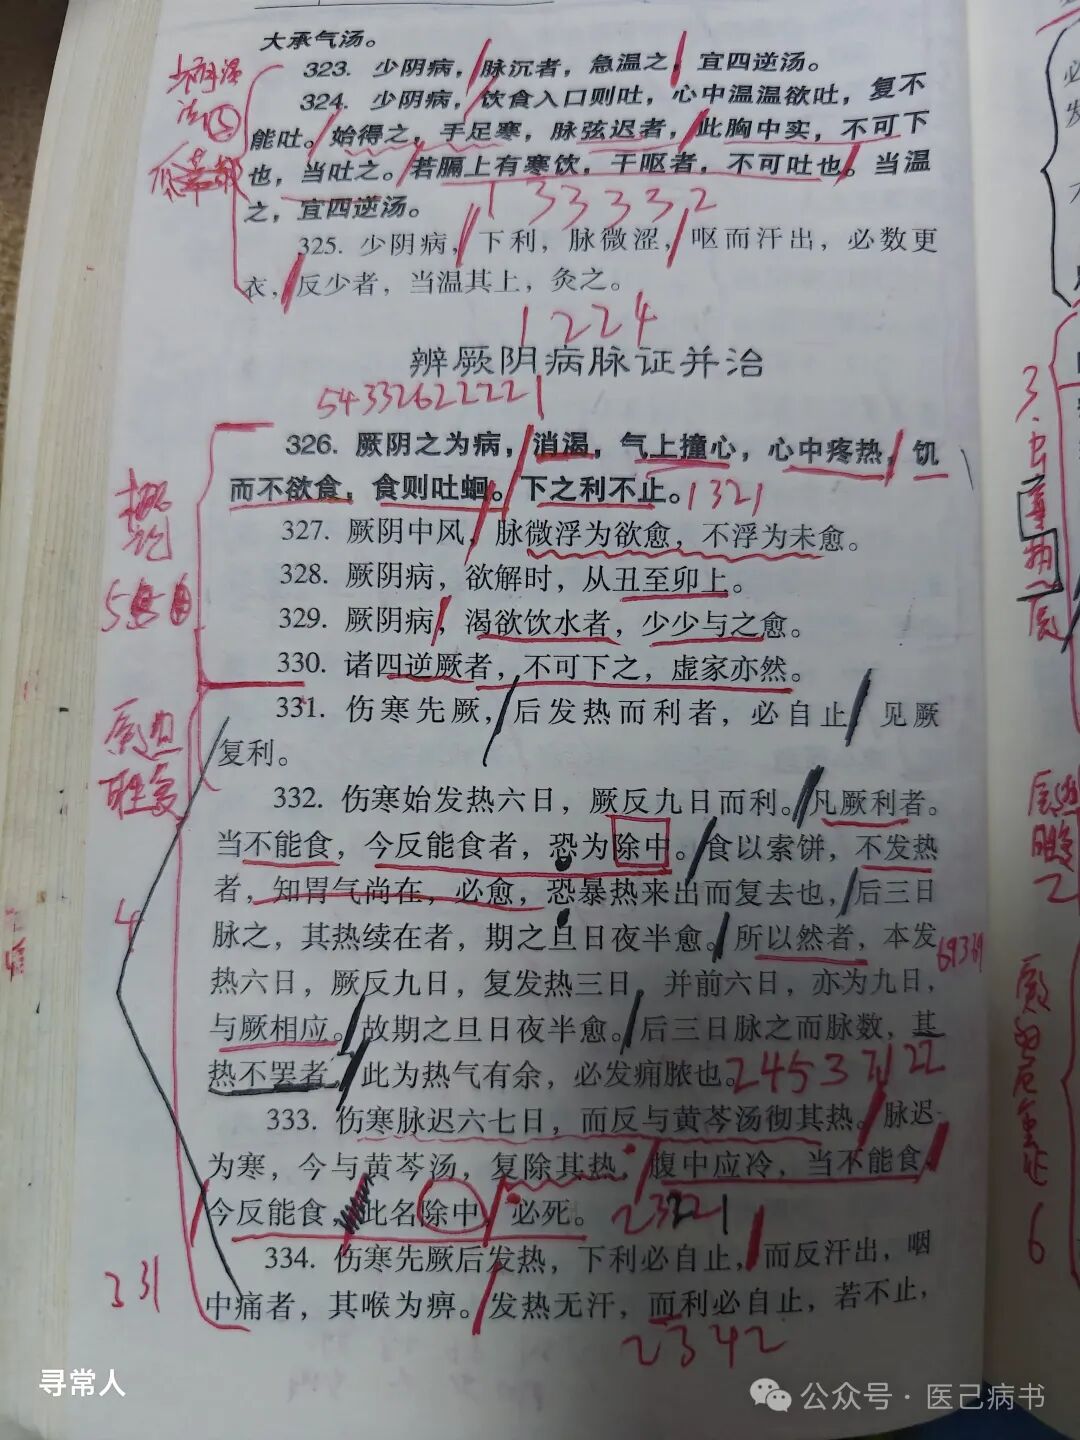 大承气汤。
323. 少阴病，脉沉者，急温之，宜四逆汤。
324. 少阴病，饮食入口则吐，心中温温欲吐，复不
能吐。始得之，手足寒，脉弦迟者，此胸中实，不可下
也，当吐之。若膈上有寒饮，干呕者，不可吐也。当温
之，宜四逆汤。
133332
325. 少阴病，下利，脉微涩，呕而汗出，必数更
衣，反少者，当温其上，灸之。
1224
辨厥阴病脉证并治
54332622221
326. 厥阴之为病，消渴，气上撞心，心中疼热，饥
而不欲食，食则吐蛔。下之利不止。1321
327. 厥阴中风，脉微浮为欲愈，不浮为未愈。
328. 厥阴病，欲解时，从丑至卯上。
329. 厥阴病，渴欲饮水者，少少与之愈。
330. 诸四逆厥者，不可下之，虚家亦然。
331. 伤寒先厥，后发热而利者，必自止，见厥
复利。
332. 伤寒始发热六日，厥反九日而利。凡厥利者。
当不能食，今反能食者，恐为除中。食以索饼，不发热
者，知胃气尚在，必愈，恐暴热来出而复去也，后三日
脉之，其热续在者，期之旦日夜半愈。所以然者，本发
热六日，厥反九日，复发热三日，并前六日，亦为九日，
69369
与厥相应。故期之旦日夜半愈。后三日脉之而脉数，其
热不罢者，此为热气有余，必发痈脓也。
333. 伤寒脉迟六七日，而反与黄芩汤彻其热。脉迟
为寒，今与黄芩汤，复除其热，腹中应冷，当不能食，
今反能食，此名除中，必死。
334. 伤寒先厥后发热，下利必自止，而反汗出，咽
中痛者，其喉为痹。发热无汗，而利必自止，若不止，
2342
概论
厥热
胜复
4
231
6
寻常人
公众号·医己病书